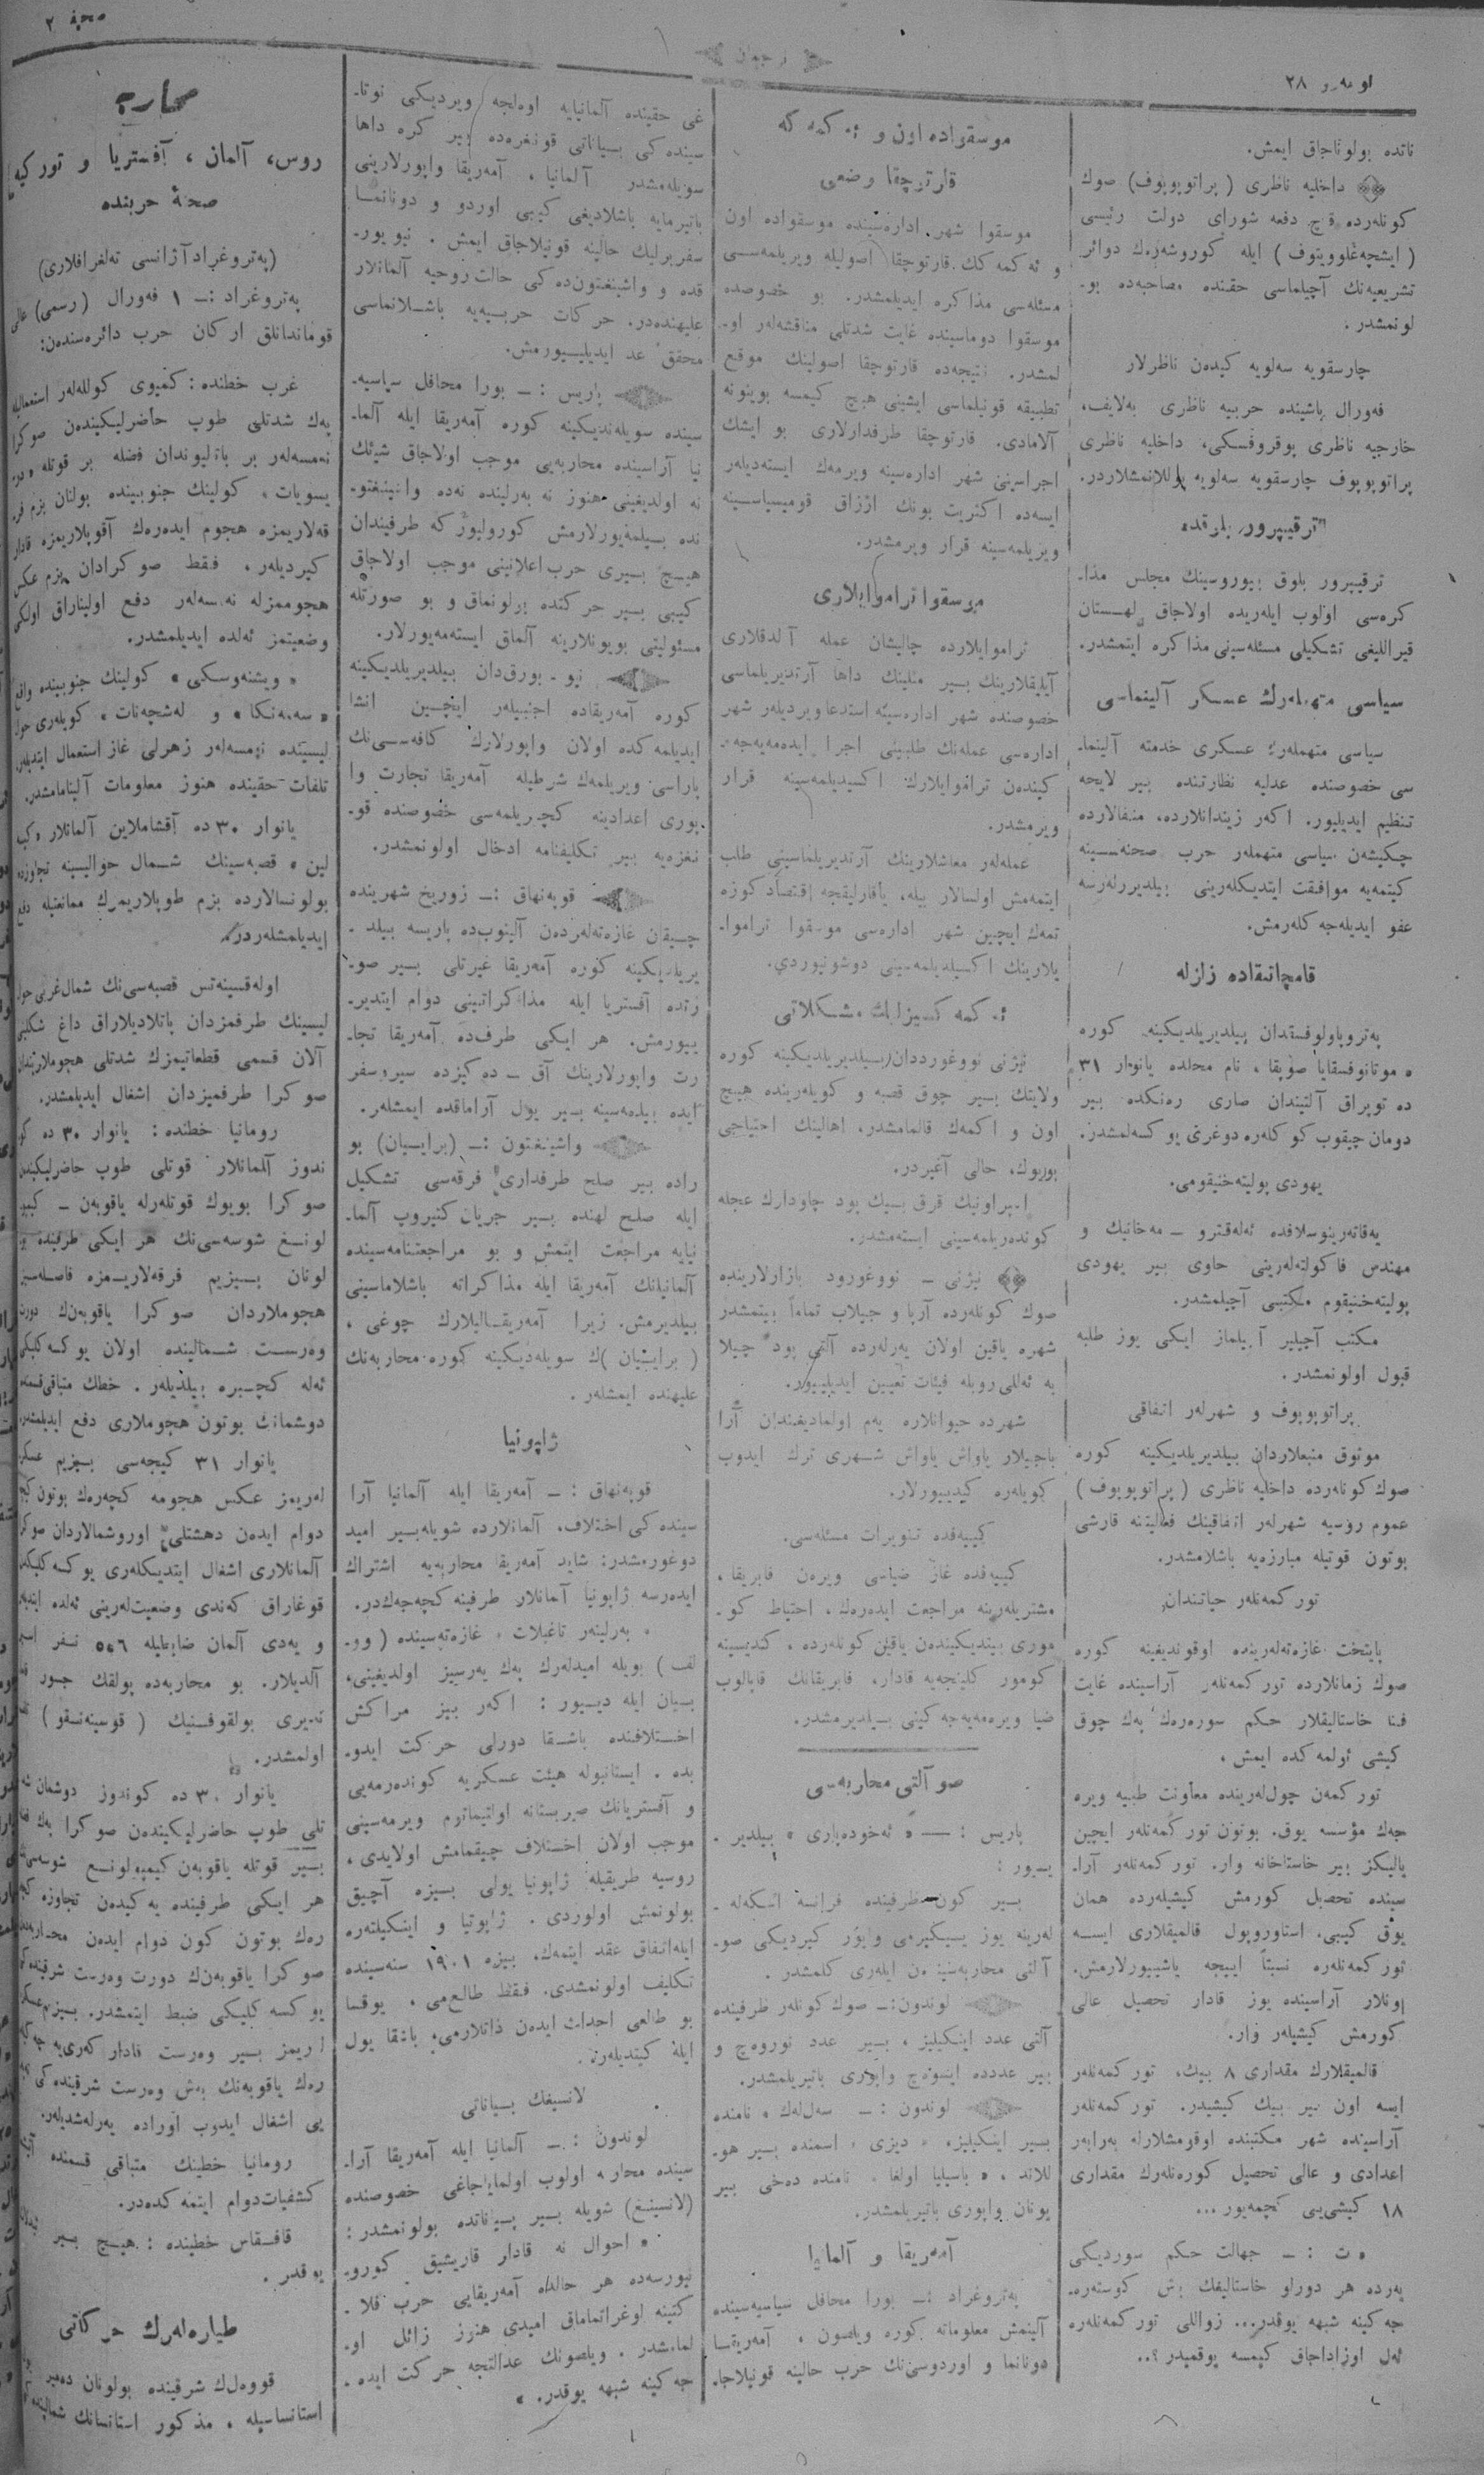 نومه‌رو ۲۸
ترجمان
صحیفه ۲
ناتده بولوناجاق ایمش.
داخلیه ناظری (پراتوپوپوف) صوك
كونلرده قچ دفعه شورای دولت رئیسی
(ایشچه‌غلوویتوف) ایله كوروشه‌رك دوائر
تشریعیه‌نك آچیلماسی حقنده مصاحبه‌ده بو-
لونمشدر.
چارسقویه سه‌لویه كیده‌ن ناظرلار
فه‌ورال باشینده حربیه ناظری به‌لایف،
خارجیه ناظری پوقروفسكی، داخلیه ناظری
پراتوپوپوف چارسقویه سه‌لویه یوللانمشلاردر.
ترقیپرور بلوقده
ترقیپرور بلوق بیوروسینك مجلس مذا-
كره‌سی اولوب ایله‌ریده اولاجاق لهستان
قیراللیغی تشكیلی مسئله‌سینی مذاكره ایتمشدر.
سیاسی متهمله‌رك عسكر آلینماسی
سیاسی متهمله‌رك عسكری خدمته آلینما-
سی خصوصنده عدلیه نظارتنده بیر لایحه
تنظیم ایدیلیور. اكر زیندانلارده، منفالارده
چكیشه‌ن سیاسی متهمله‌ر حرب صحنه‌سینه
كیتمه‌یه موافقت ایتدیكله‌رینی بیلدیررله‌رسه
عفو ایدیله‌جه كله‌رمش.
قامچاتقاده زلزله
په‌تروپاولوفسقدان بیلدیریلدیكینه كوره
ده توپراق آلتیندان صاری ره‌نكده بیر
دومان چیقوب كوكلەره دوغری یوكسه‌لمشدر.
یهودی پولیته‌خنیقومی.
یه‌قاته‌رینوسلاقده ئه‌له‌قترو – مه‌خانیك و
مهندس فاكولته‌لرینی حاوی بیر یهودی
پولیته‌خنیقوم مكتبی آچیلمشدر.
مكتب آچیلیر آچیلماز ایكی یوز طلبه
قبول اولونمشدر.
پراتوپوپوف و شهرلەر اتفاقی
موثوق منبعلاردان بیلدیریلدیكینه كوره
صوك كونلرده داخلیه ناظری (پراتوپوپوف)
عموم روسیه شهرلەر اتفاقینك فعالیتنه قارشی
بوتون قوتیله مبارزه‌یه باشلامشدر.
توركمه‌نله‌ر حیاتندان
پایتخت غازه‌ته‌له‌رینده اوقوندیغینه كوره
صوك زمانلارده توركمه‌نله‌ر آراسینده غایت
فنا خاستالیقلار حكم سوره‌رك پك چوق
كیشی ئولمه‌كده ایمش.
توركمه‌ن چول‌لەرینده معاونت طبیه ویره
جه‌ك مؤسسه یوق. بوتون توركمه‌نله‌ر ایچین
یالیكز بیر خاستاخانه وار. توركمه‌نله‌ر آرا-
سینده تحصیل كورمش كیشیله‌رده همان
یوق كیبی. استاوروپول قالمیقلاری ایسه
توركمه‌نله‌ره نسبتاً اییجه یاشییورلارمش.
اونلار آراسینده یوز قادار تحصیل عالی
كورمش كیشیلەر وار.
قالمیقلارك مقداری ۸ بیك، توركمه‌نله‌ر
ایسه اون بیر بیك كیشیدر. توركمه‌نله‌ر
آراسینده شهر مكتبنده اوقومشلارله به‌رابه‌ر
اعدادی و عالی تحصیل كوره‌نله‌رك مقداری
۱۸ كیشی‌یی كچمه‌یور...
ت : – جهالت حكم سوردیكی
یه‌رده هر دورلو خاستالیغك باش كوسته‌ره-
جه‌كینه شبهه یوقدر... زواللی توركمه‌نله‌ره
ئه‌ل اوزاداجاق كیمسه یوقمیدر؟..
موسقواده اون و ئه‌كمه‌كه
قارتوچقا وضعی
موسقوا شهر اداره‌سینده موسقواده اون
و ئه‌كمه‌كك قارتوچقا اصولیله ویریلمه‌سی
مسئله‌سی مذاكره ایدیلمشدر. بو خصوصده
موسقوا دوماسینده غایت شدتلی مناقشه‌لەر او-
لمشدر. نتیجه‌ده قارتوچقا اصولینك موقع
تطبیقه قونیلماسی ایشینی هیچ كیمسه بوینونه
آلامادی. قارتوچقا طرفدارلاری بو ایشك
اجراسینی شهر اداره‌سینه ویرمه‌ك ایسته‌دیلەر
ایسه‌ده اكثریت بونك ارزاق قومیسیاسینه
ویریلمه‌سینه قرار ویرمشدر.
موسقوا تراموایلاری
تراموایلارده چالیشان عمله آلدقلاری
آیلیقلارینك بیر مثلینك داها آرتدیریلماسی
خصوصنده شهر اداره‌سینه استدعا ویردیلەر شهر
اداره‌سی عمله‌نك طلبینی اجرا ایده‌مه‌یه‌جه-
كیندن تراموایلارك اكسیدیلمه‌سینه قرار
ویرمشدر.
عمله‌لەر معاشلارینك آرتدیریلماسینی طلب
ایتمه‌مش اولسالار بیله، یاقارلیقجه اقتصاد كوزه
تمه‌ك ایچین شهر اداره‌سی موسقوا تراموا-
یلارینك اكسیلدیلمه‌سینی دوشونیوردی.
ئه‌كمه‌كسیزلك مشكلاتی
نیژنی نووغورددان بیلدیریلدیكینه كوره
ولایتك بیر چوق قصبه و كویله‌رینده هیچ
اون و اكمه‌ك قالمامشدر، اهالینك احتیاجی
بویوك، حالی آغیردر.
كونده‌ریلمه‌سینی ایسته‌مشدر.
نیژنی – نووغورود بازارلارینده
صوك كونلرده آرپا و جیلاب تماماً بیتمشدر
شهره یاقین اولان یه‌رله‌رده آلتی پود چیلا
به ئه‌للی روبله فیئات تعیین ایدیلییور.
شهرده حیوانلاره یه‌م اولمادیغیندان آرا
باجیلار یاواش یاواش شهری ترك ایدوب
كویلەره كیدییورلار.
كییه‌فده تنویرات مسئله‌سی.
كییه‌فده غاز ضیاسی ویره‌ن فابریقا،
مشتریله‌رینه مراجعت ایده‌رك، احتیاط كو-
موری بیتدیكینده‌ن یاقین كونلرده، كندیسینه
كومور كلینجه‌یه قادار، فابریقانك قاپالوب
ضیا ویره‌مه‌یه‌جه‌كینی بیلدیرمشدر.
صو آلتی محاربه‌سی
پاریس : – « ئه‌خوده‌پاری » بیلدیر-
یور :
بیر كون ظرفینده فرانسه اسكه‌له-
له‌رینه یوز ییكیرمی واپور كیردیكی صو-
آلتی محاربه‌سینده‌ن ایله‌ری كلمشدر.
لوندون: – صوك كونلەر ظرفینده
آلتی عدد اینكیلیز، بیر عدد نوروه‌ج و
بیر عددده ایسوه‌ج واپوری باتیریلمشدر.
لوندون : – سه‌ل‌له‌ك نامنده
بیر اینكیلیز، دیزی اسمنده بیر هو-
للاند، « باسیلیا اولغا » نامنده ده‌خی بیر
یونان واپوری باتیریلمشدر.
آمه‌ریقا و آلمانیا
په‌تروغراد : – بورا محافل سیاسیه‌سینده
آلینمش معلوماته كوره ویلصون، آمه‌ریقا
دونانما و اوردوسینك حرب حالینه قونیلاجا-
غی حقینده آلمانیایه اوه‌لجه ویردیكی نوتا-
سینده‌كی بیاناتی قونغره‌ده بیر كره داها
سویله‌مشدر آلمانیا، آمه‌ریقا واپورلارینی
باتیرمایه باشلادیغی كیبی اوردو و دونانما
سفربرلیك حالینه قونیلاجاق ایمش. نیویور-
قده و واشینغتون‌ده‌كی حالت روحیه آلمانلار
علیهنده‌در. حركات حربیه‌یه باشلانماسی
محقق عد ایدیلییورمش.
پاریس : – بورا محافل سیاسیه-
سینده سویله‌ندیكینه كوره آمه‌ریقا ایله آلما-
نیا آراسینده محاربه‌یی موجب اولاجاق شیئك
نه اولدیغینی هنوز نه به‌رلینده نه‌ده واشینغتو-
نده بیلمه‌یورلارمش كورولیور كه طرفیندان
هیچ بیری حرب اعلانینی موجب اولاجاق
كیبی بیر حركتده بولونماق و بو صورتله
مسئولیتی بویونلارینه آلماق ایسته‌مه‌یورلار.
نیو-یورق‌دان بیلدیریلدیكینه
كوره آمه‌ریقاده اجنبیلەر ایچین انشا
ایدیلمه‌كده اولان واپورلارك كافه‌سی‌نك
پاراسی ویریلمه‌ك شرطیله آمه‌ریقا تجارت وا
پوری اعدادینه كچیریلمه‌سی خصوصنده قو-
نغره‌یه بیر تكلیفنامه ادخال اولونمشدر.
قوپه‌نهاق : – زوریخ شهرینده
چیقان غازه‌ته‌له‌رده‌ن آلینوب‌ده پاریسه بیلد-
یریلدیكینه كوره آمه‌ریقا غیرتلی بیر صو-
رتده آفستریا ایله مذاكراتینی دوام ایتدیر-
ییورمش. هر ایكی طرف‌ده آمه‌ریقا تجا-
رت واپورلارینك آق – ده‌كیزده سیر و سفر
ایده بیلمه‌سینه بیر یول آراماقده ایمشلەر.
واشینغتون : – (برایییان) بو
راده بیر صلح طرفداری فرقه‌سی تشكیل
ایله صلح لهنده بیر جریان كتیروب آلما-
نیایه مراجعت ایتمش و بو مراجعتنامه‌سینده
آلمانیانك آمه‌ریقا ایله مذاكراته باشلاماسینی
بیلدیرمش. زیرا آمه‌ریقالیلارك چوغی،
(برایییان)ك سویله‌دیكینه كوره محاربه‌نك
علیهنده ایمشلەر.
ژاپونیا
قوپه‌نهاق : – آمه‌ریقا ایله آلمانیا آرا
سینده‌كی اختلاف، آلمانلارده شویله بیر امید
دوغورمشدر: شاید آمه‌ریقا محاربه‌یه اشتراك
ایده‌رسه ژاپونیا آلمانلار طرفینه كچه‌جه‌ك‌در.
به‌رلینه‌ر تاغبلات غازه‌ته‌سینده (وو-
لف) بویله امیدله‌رك پك یه‌رسیز اولدیغینی،
بیان ایله دییور : اكر بیز مراكش
اختلافنده باشقا دورلی حركت ایدو-
بده، ایستانبوله هیئت عسكریه كونده‌رمه‌یی
و آفستریانك صربستانه اولتیماتوم ویرمه‌سینی
موجب اولان اختلاف چیقمامش اولایدی،
روسیه طریقیله ژاپونیا یولی بیزه آچیق
بولونمش اولوردی. ژاپونیا و اینكیلتره
ایله اتفاق عقد ایتمه‌ك، بیزه ۱۹۰۱ سنه‌سینده
تكلیف اولونمشدی. فقط طالع‌می، یوقسا
بو طالعی احداث ایده‌ن ذاتلارمی، باشقا یول
ایله كیتدیله‌ر.
لانسینغك بیاناتی
لوندون : – آلمانیا ایله آمه‌ریقا آرا-
سینده محاربه اولوب اولمایاجاغی خصوصنده
(لانسینغ) شویله بیر بیاناتده بولونمشدر :
« احوال نه قادار قاریشیق كورو-
نیورسه‌ده هر حالده آمه‌ریقایی حرب فلا-
كتینه اوغراتماماق امیدی هنوز زائل او-
لمامشدر. ویلصونك عدالتجه حركت ایده-
جه‌كینه شبهه یوقدر. »
محاربه
روس، آلمان، آفستریا و توركیه
صحنهٔ حربنده
(په‌تروغراد آژانسی ته‌لغرافلاری)
په‌تروغراد : – ۱ فه‌ورال (رسمی) عالی
قوماندانلق اركان حرب دائره‌سندن:
غرب خطنده : كیمیوی كولله‌لەر استعمالیله
پك شدتلی طوپ حاضرلیكیندەن صوكرا
نه‌مسه‌لەر بر باتلیوندان فضله بر قوتله
كولینك جنوبینده بولنان بزم فر-
قه‌لاریمزه هجوم ایده‌رك آقوپلاریمزه قادار
كیردیلەر، فقط صوكرادان بزم عكس
هجوممزله نه‌مسه‌لەر دفع اولیناراق اولكی
وضعیتمز ئه‌لده ایدیلمشدر.
« ویشنه‌وسكی » كولینك جنوبینده واقع
و له‌شچه‌نات كویله‌ری حوا
لیسینده نه‌مسه‌لەر زهرلی غاز استعمال ایتدیلەر.
تلفات حقینده هنوز معلومات آلینامامشدر.
یانوار ۳۰ ده آقشاملاین آلمانلار
قصبه‌سینك شمال حوالیسینه تجاوزده
بولونسالارده بزم طوپلاریمزك ممانعتیله دفع
ایدیلمشله‌ردر.
قصبه‌سی‌نك شمال غربی حوا
لیسینك طرفمزدان پاتلادیلاراق داغ شكلنی
آلان قسمی قطعاتیمزك شدتلی هجوملارندان
صوكرا طرفمیزدان اشغال ایدیلمشدر.
رومانیا خطنده : یانوار ۳۰ ده كو
ندوز آلمانلار قوتلی طوپ حاضرلیكیندن
صوكرا بویوك قوتله‌رله یاقوبه‌ن –
لونغ شوسه‌سی‌نك هر ایكی طرفنده بو
لونان بیزیم فرقه‌لاریمزه فاصله‌سیز
هجوملاردان صوكرا یاقوبه‌ن‌ك دورت
وه‌رست شمالینده اولان یوكسه‌كلیكی
ئه‌له كچیره بیلدیلەر. خطك متباقی قسمنده
دوشمانك بوتون هجوملاری دفع ایدیلمشدر.
یانوار ۳۱ كیجه‌سی بیزیم عسكر
له‌ریمز عكس هجومه كچه‌رك بوتون كیجه
دوام ایده‌ن دهشتلی اوروشمالاردان صوكرا
آلمانلاری اشغال ایتدیكله‌ری یوكسه‌كلیكدن
قوغاراق كه‌ندی وضعیت‌له‌رینی ئه‌لده ایتدیلەر
و یه‌دی آلمان ضابطیله ۵۰۶ نفر اسیر
آلدیلار. بو محاربه‌ده پولقك جسور
پولقوفنیك (قوسینه‌نقو)
اولمشدر.
یانوار ۳۰ ده كوندوز دوشمان شد
تلی طوپ حاضرلیكیندن صوكرا پك
بیر قوتله یاقوبه‌ن كیمپولونغ شوسه‌سی‌نك
هر ایكی طرفینده یه‌كیده‌ن تجاوزه كچه
رك بوتون كون دوام ایده‌ن محاربه‌دن
صوكرا یاقوبه‌ن‌ك دورت وه‌رست شرقینده
یوكسه‌كلیكی ضبط ایتمشدر. بیزیم عسكر
لریمز بیر وه‌رست قادار كه‌ری‌یه چكیله
رك یاقوبه‌نك بش وه‌رست شرقینده‌كی
یی اشغال ایدوب اوراده یه‌رله‌شدیلەر.
رومانیا خطینك متباقی قسمنده
كشفیات دوام ایتمه‌كده‌در.
قافقاس خطینده : هیچ بیر تبدلات
یوقدر.
طیاره‌له‌رك حركاتی
قووه‌ل‌ك شرقینده بولونان ده‌میر یول
استانساسیله، مذكور استانسانك شمالینده